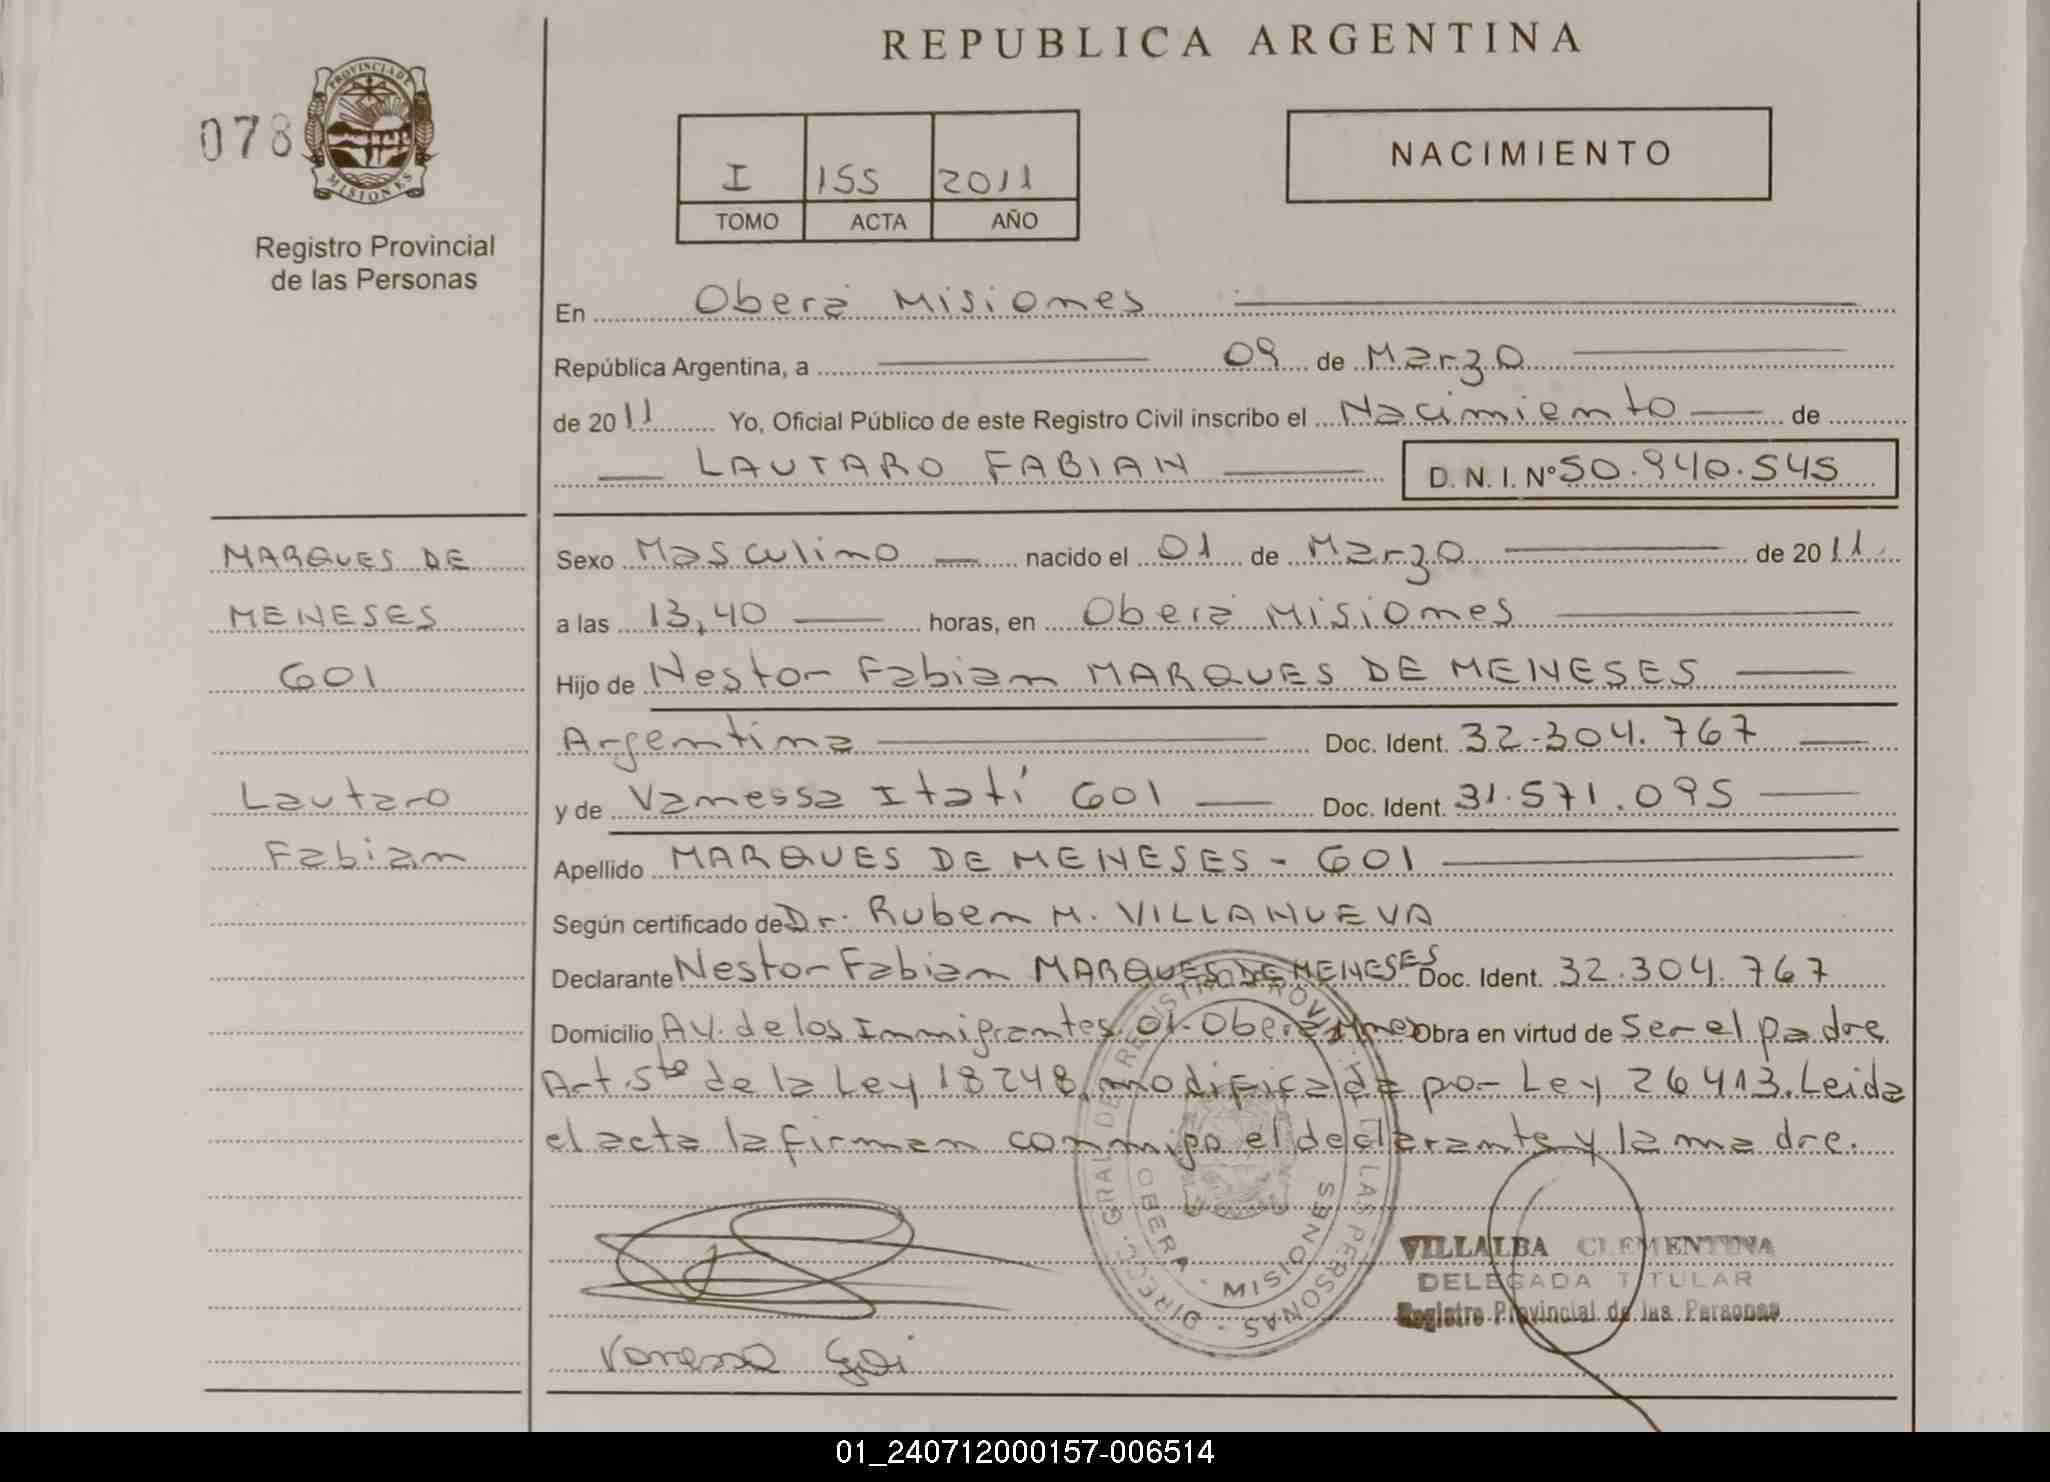 REPUBLICA ARGENTINA
078
PROVINCIA DE
MISIONES
Registro Provincial
de las Personas
I 155 2011
TOMO ACTA AÑO
NACIMIENTO
En Oberá Misiones
República Argentina, a 09 de Marzo
de 2011 Yo, Oficial Público de este Registro Civil inscribo el Nacimiento de
LAUTARO FABIAN D. N. I. Nº 50.940.545
MARQUES DE
MENESES
GOI
Lautaro
Fabian
Sexo Masculino nacido el 01 de Marzo de 2011
a las 13,40 horas, en Oberá Misiones
Hijo de Nestor Fabian MARQUES DE MENESES
Argentina Doc. Ident. 32.304.767
y de Vanessa Itatí GOI Doc. Ident. 31.571.095
Apellido MARQUES DE MENESES - GOI
Según certificado de Dr. Ruben M. VILLANUEVA
Declarante Nestor Fabian MARQUES DE MENESES Doc. Ident. 32.304.767
Domicilio Av. de los Inmigrantes 01-Oberá Mnes Obra en virtud de Ser el padre
Art. 5te de la Ley 18248, modificada por Ley 26413. Leida
el acta la firman conmigo el declarante y la madre.
DIRECC. GRAL. DE REGISTRO PROVINCIAL DE LAS PERSONAS -
OBERA - MISIONES
VILLALBA CLEMENTINA
DELEGADA TITULAR
Registro Provincial de las Personas
Vanessa Goi
01_240712000157-006514